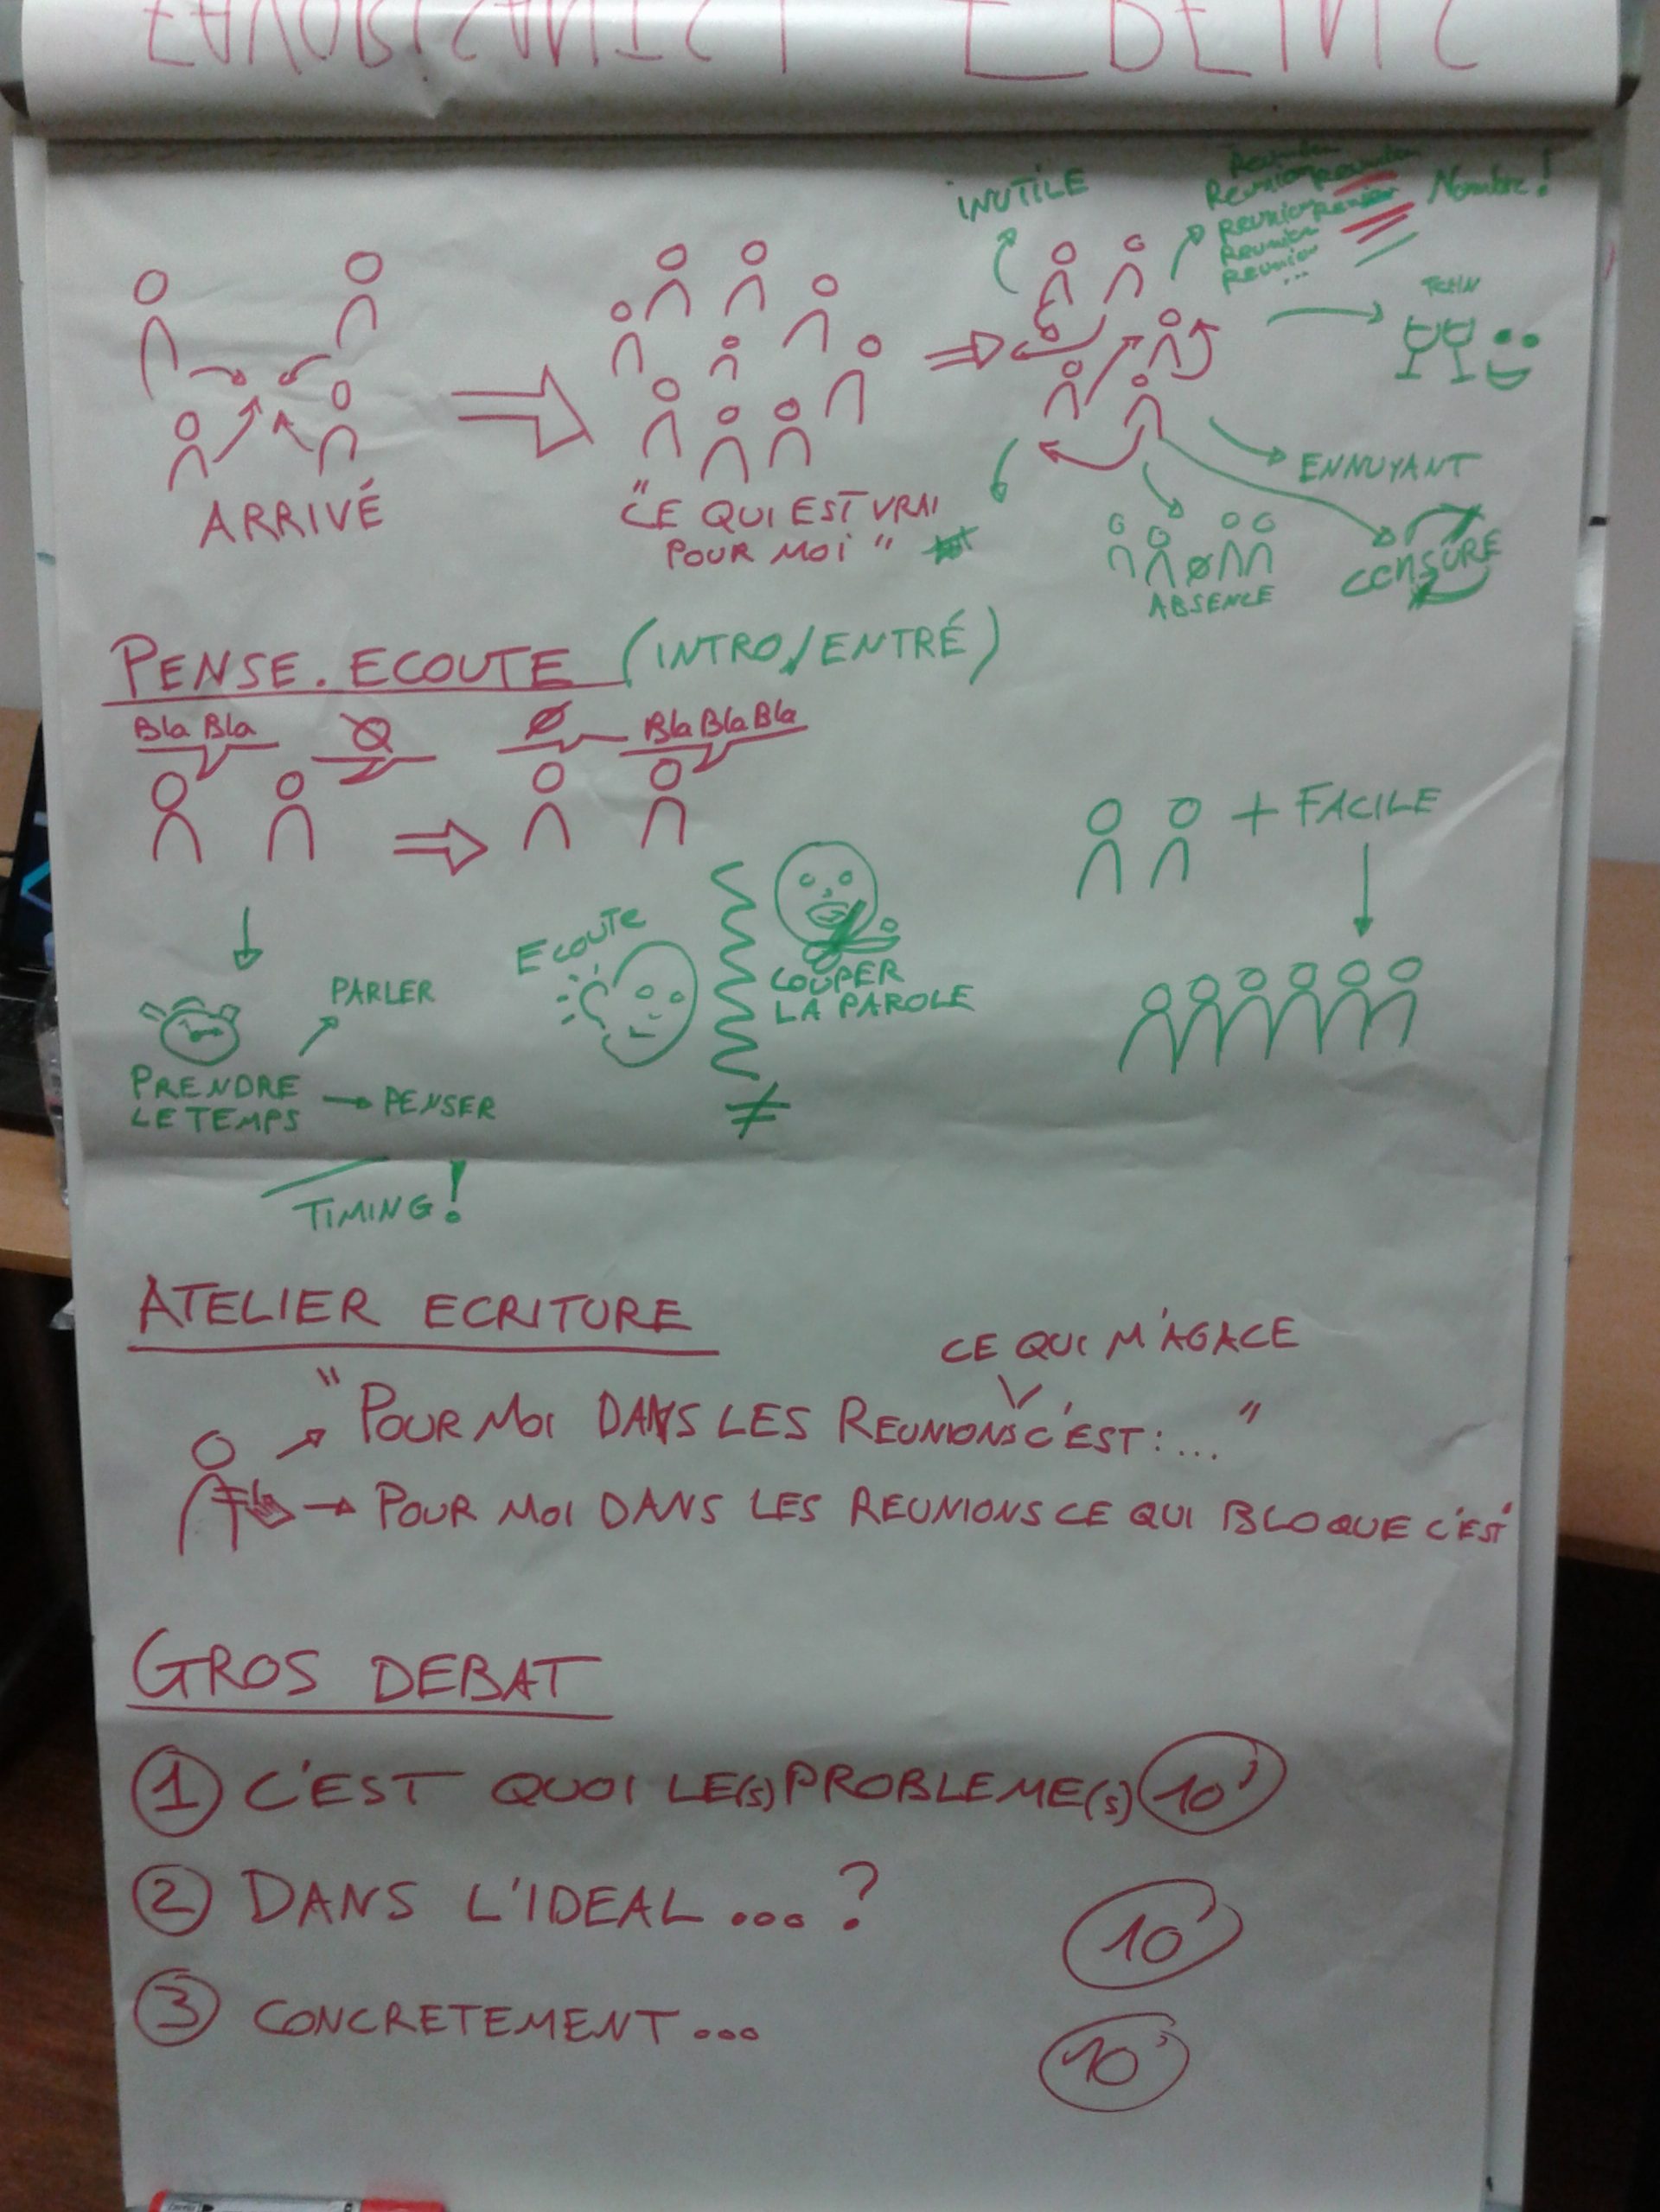 INUTILE
Reunion
Reunion Reunion
Reunion Reunion
Reunion
Reunion
...
Nombre !
TCHIN
ARRIVÉ
"CE QUI EST VRAI
POUR MOI"
ENNUYANT
CENSURE
ABSENCE
PENSE. ECOUTE (INTRO/ENTRÉ)
Bla Bla
Ø
Ø
Bla Bla Bla
+ FACILE
PARLER
PRENDRE
LE TEMPS
PENSER
TIMING !
Ecoute
COUPER
LA PAROLE
≠
ATELIER ECRITURE
CE QUI M'AGACE
"POUR MOI DANS LES REUNIONS C'EST : ..."
POUR MOI DANS LES REUNIONS CE QUI BLOQUE C'EST
GROS DEBAT
1 C'EST QUOI LE(S) PROBLEME(S) 10'
2 DANS L'IDEAL ... ? 10'
3 CONCRETEMENT ... 10'